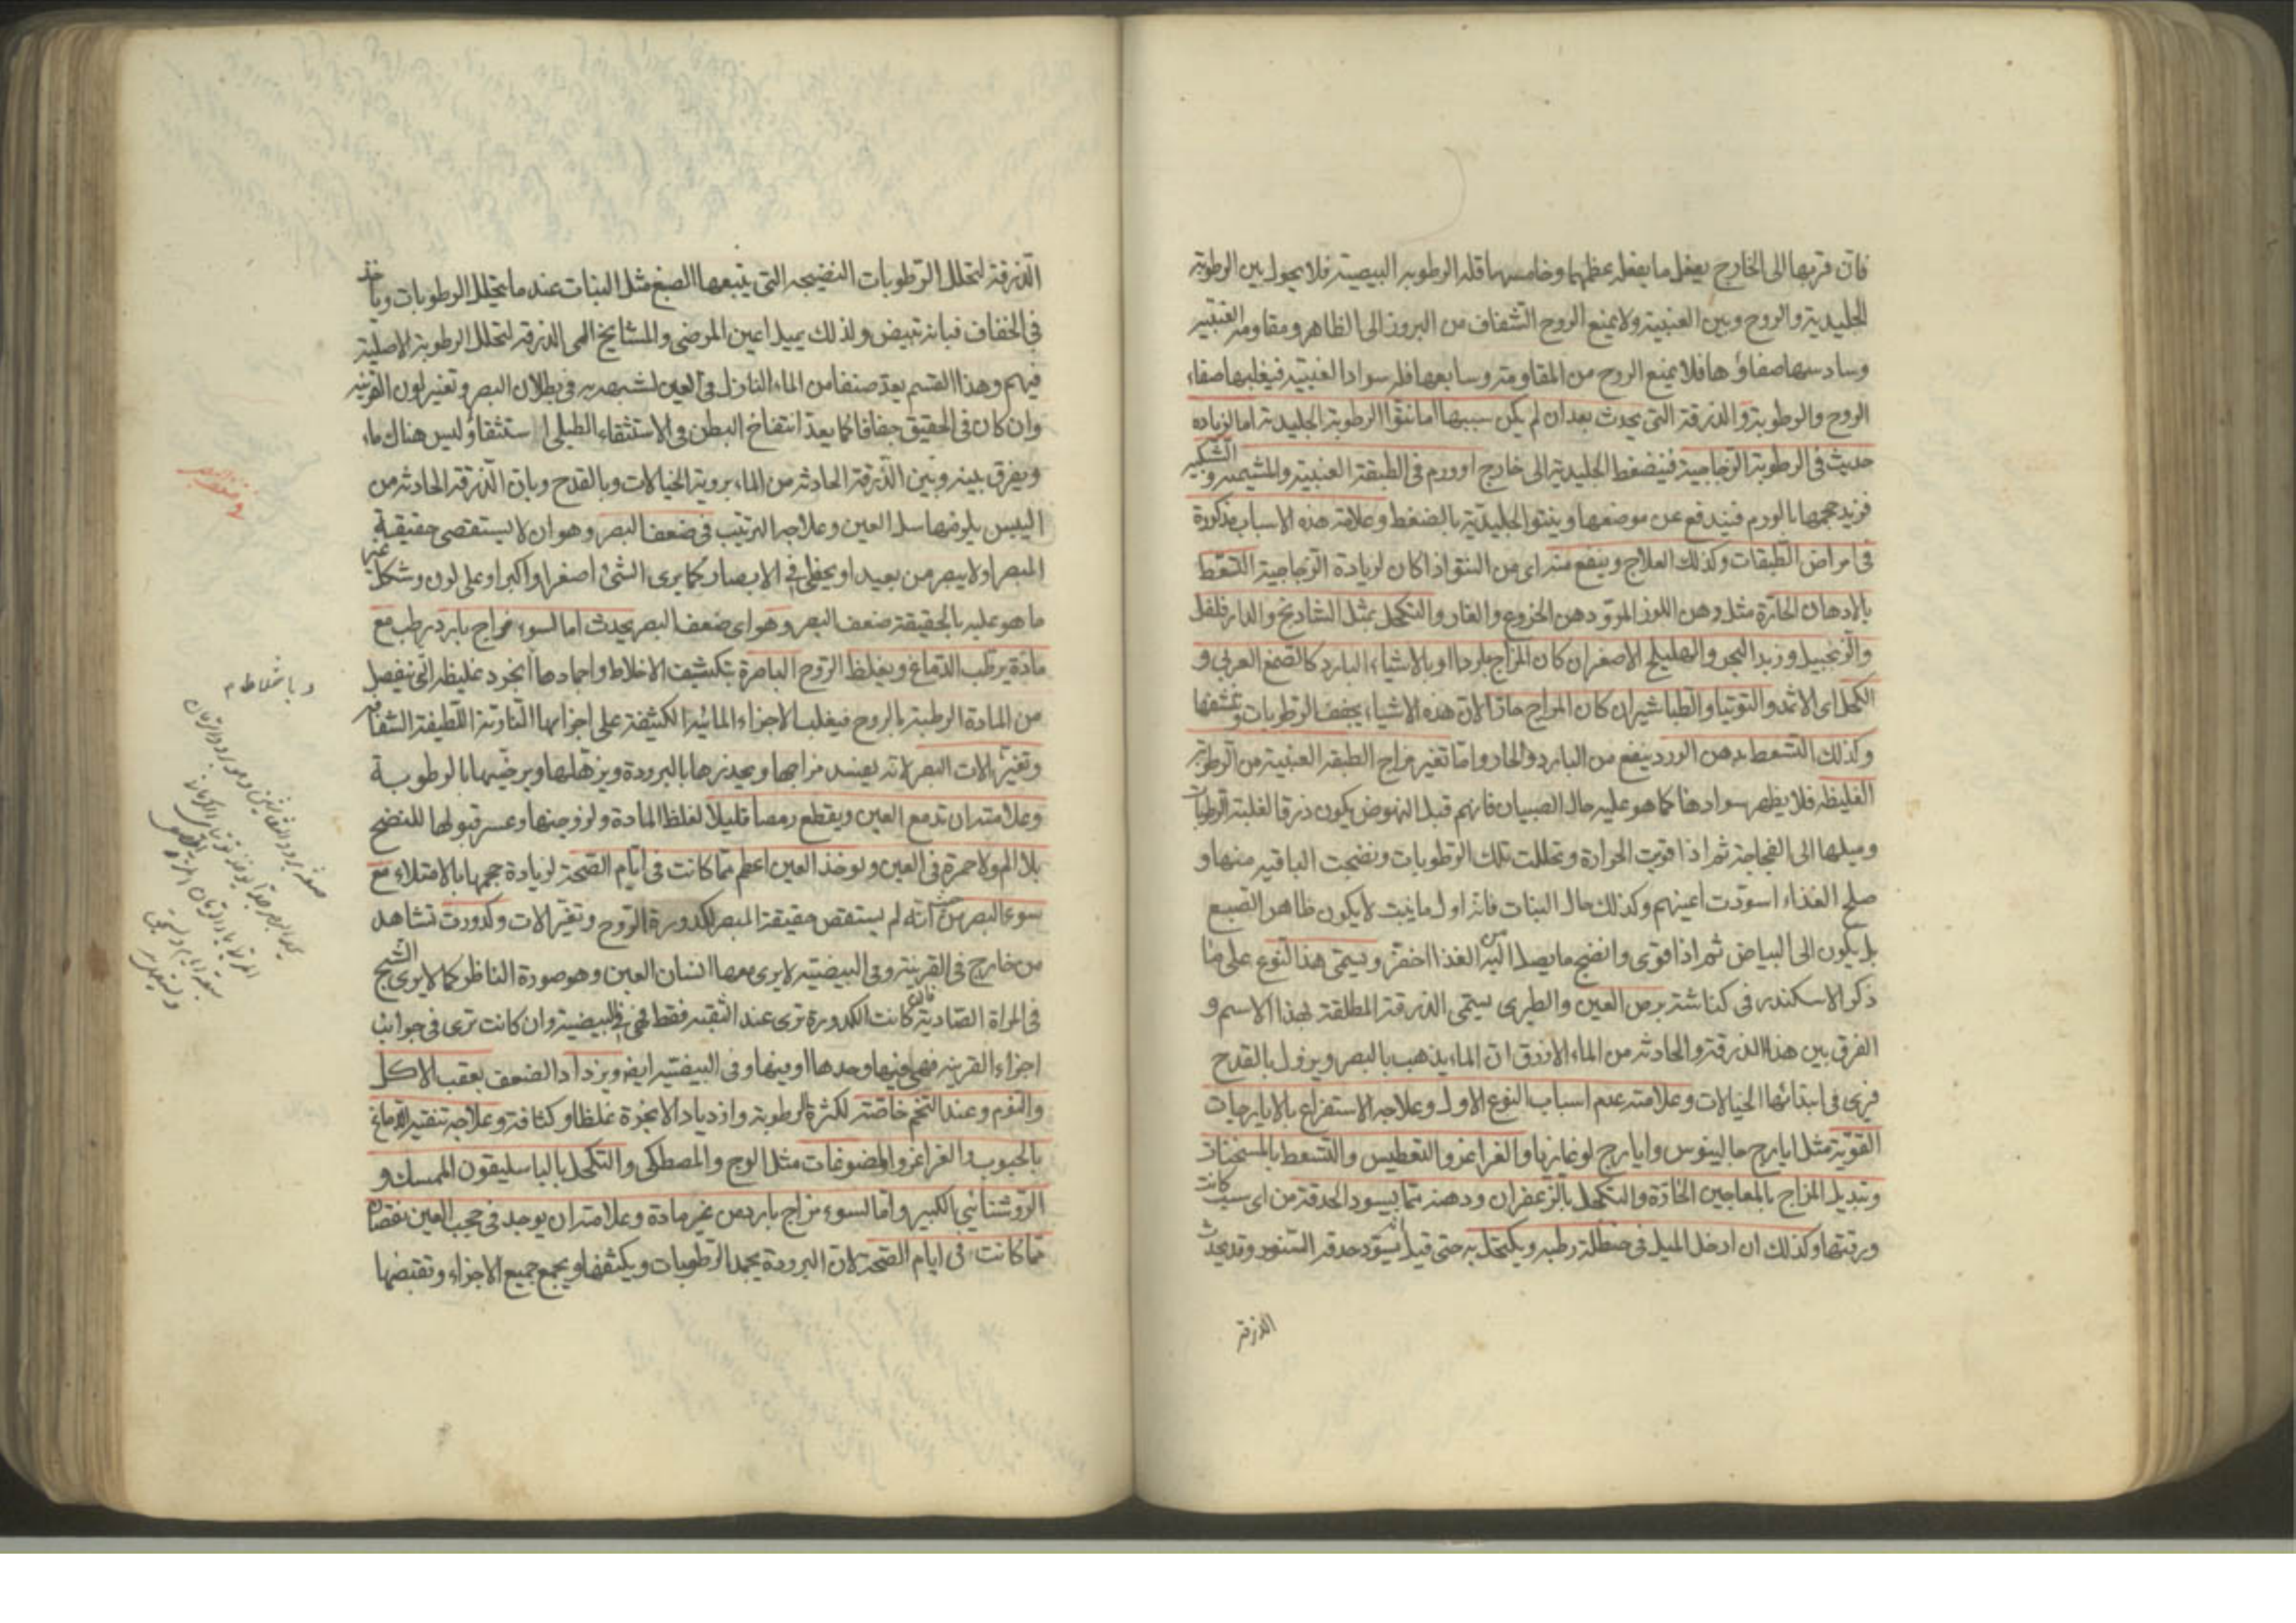 فان قربها الى الخارج يفعل ما يفعله عظمها وخامسها قله الرطوبه البيضية فلا يحول بين الرطوبة
الجليدية والروح وبين العنبية ولا يمنع الروح الشفاف من البروز الى الظاهر ومقاومه العنبية
وسادسها صفاؤها فلا يمنع الروح من المقاومة وسابعها قله سواد العنبية فيغلبها صفاء
الروح والرطوبة والزرقة التى يحدث بعد ان لم يكن سببها اما نتوّ الرطوبة الجليدية اما لزياده
حديث فى الرطوبة الزجاجية فيضغط الجليدية الى خارج او ورم فى الطبقة العنبية والمشيمية والشبكية
فزيد حجمها بالورم فيندفع عن موضعها وينتو الجليدية بالضغط وعلامة هذه الاسباب مذكورة
فى امراض الطبقات وكذلك العلاج وينفع منه اى من النتو اذا كان لزيادة الزجاجية التسعط
بالادهان الحارة مثل دهن اللوز المرّ ودهن الخروع والغار والتكحل بمثل الشادنج والدارفلفل
والزنجبيل وزبد البحر والهليلج الاصفر ان كان المزاج باردا او بالاشياء البارد كالصمغ العربى و
الكحل اى الاثمد والتوتيا والطباشير ان كان المزاج حارّا لان هذه الاشياء يجفف الرطوبات وتنشفها
وكذلك التسعط بدهن الورد ينفع من البارد والحار واما تغير مزاج الطبقة العنبية من الرطوبة
الغليظه فلا يظهر سوادها كما هو عليه حال الصبيان فانهم قبل النهوض يكون زرقا لغلبة الرطوبات
وميلها الى الفجاجة ثم اذا قويت الحرارة وتحللت تلك الرطوبات ونضجت الباقيه منها و
صلح الغذاء اسودّت اعينهم وكذلك حال النبات فانه اول ما ينبت لا يكون ظاهر الصبغ
بل يكون الى البياض ثم اذا قوى وانضج ما يصل اليه من الغذا اخضرّ ويسمى هذا النوع على ما
ذكر الاسكندر فى كناشة برص العين والطبرى يسمى الزرقة المطلقة بهذا الاسم و
الفرق بين هذا الزرقة والحادثه من الماء الازرق ان الماء يذهب بالبصر ويزول بالقدح
فرى فى ابتدائها الخيالات وعلامته عدم اسباب النوع الاول وعلاجه الاستفراغ بالايارجات
القويّة مثل ايارج جالينوس وايارج لوغاذيا والغراغر والتعطيس والتسعط بالمسخنات
وتبديل المزاج بالمعاجين الحارّة والتكحل بالزعفران ودهنه مما يسود الحدقة من اى سبب كانت
ورقتها وكذلك ان ادخل الميل فى حنظلة رطبه ويكتحل به حتى قيل انه يسوّد حدقه السنور وقد يحدث
الزرقة
الزرقة لتحلل الرطوبات النضيجه التى يتبعها الصبغ مثل النبات عند ما يتحلل الرطوبات وياخذ
فى الجفاف فبانه تبيض ولذلك يميل اعين المرضى والمشايخ الى الزرقه لتحلل الرطوبة الاصلية
فيهم وهذا القسم يعدّ صنفا من الماء النازل فى العين لشبهه به فى بطلان البصر وتغير لون القرنيه
وان كان فى الحقيق جفافا كما يعدّ انتفاخ البطن فى الاستسقاء الطبلى استسقاؤ ليس هناك ماء
ويفرق بينه وبين الزرقة الحادثه من الماء بروية الخيالات وبالقدح وبان الزرقة الحادثه من
اليبس يلزمها سل العين وعلاجه الترتيب فى ضعف البصر وهو ان لا يستقصى حقيقة
المبصر او لا يبصر من بعيد او يخطى فى الابصار كما يرى الشئ اصغر او اكبر او على لون وشكل غير
ما هو عليه بالحقيقة ضعف البصر وهو اى ضعف البصر يحدث اما لسوء مزاج بارد رطب مع
مادّة يرطب الدّماغ ويغلظ الروح الباصرة بتكثيف الاخلاط واجمادها ابخرد غليظه التى ينفصل
من المادة الرطبة بالروح فيغلب الاجزاء المائية الكثيفة على اجزايها النارية اللطيفة الشفافه
وتغير الات البصر لانه يفسد مزاجها ويحذرها بالبرودة ويزهلها ويرخيها بالرطوبة
وعلامته ان تدمع العين ويقطع رمصا قليلا لغلظ المادة ولزوجتها وعسر قبولها للنضج
بلا الم ولا حمرة فى العين ويوخذ العين اعظم مما كانت فى ايام الصّحة لزيادة حجمها بالامتلاء مع
سوء البصر من حيث انه لم يستقص حقيقة المبصر لكدورة الرّوح وتغير الات وكدورت تشاهد
من خارج فى القرنية وفى البيضية لا يرى معها انسان العين وهو صورة الناظر كما لا يرى الشبح
فى المراة الصّادية فان كانت الكدورة ترى عند الثقبه فقط فهى فى البيضية وان كانت ترى فى جوانب
اجزاء القرنيه فهى فيها وحدها او فيها وفى البيضية ايضا ويزداد الضعف بعقب الاكل
والنوم وعند التخم خاصّة لكثرة الرطوبة وازدياد الابخرة غلظا وكثافة وعلاجه تنقية الدّماغ
بالحبوب والغراغر والمضوغات مثل الوج والمصطكى والتكحل بالباسليقون الممسك و
الروشنائى الكبير وامّا لسوء مزاج بارد من غير مادة وعلامته ان يوجد فى حجب العين نقصان
مما كانت فى ايام الصّحة لان البرودة يجمد الرطوبات ويكثفها ويجمع جميع الاجزاء وتقبضها
فى ضعف البصر